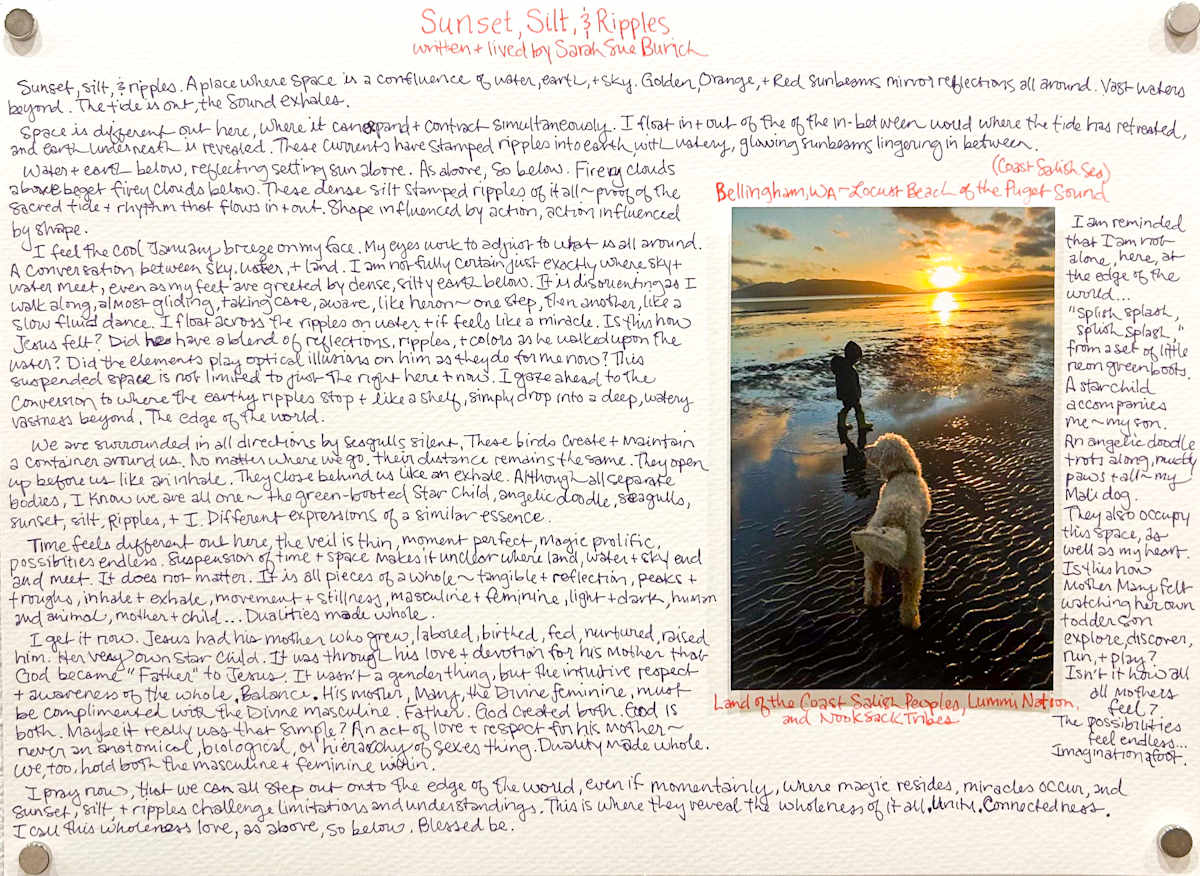 Sunset, Silt, & Ripples
written + lived by Sarah Sue Burich
Sunset, silt, & ripples. A place where space is a confluence of water, earth, + sky. Golden, Orange, + Red sunbeams mirror reflections all around. Vast waters
beyond. The tide is out, the Sound exhales.
Space is different out here, where it can expand + contract simultaneously. I float in + out of the of the in-between world where the tide has retreated,
and earth underneath is revealed. These currents have stamped ripples into earth, with watery, glowing sunbeams lingering in between.
Water + earth below, reflecting setting sun above. As above, so below. Firey clouds
above beget firey clouds below. These dense silt stamped ripples of it all ~ proof of the
sacred tide + rhythm that flows in + out. Shape influenced by action, action influenced
by shape.
I feel the cool January breeze on my face. My eyes work to adjust to what is all around.
A conversation between sky, water, + land. I am not fully certain just exactly where sky +
water meet, even as my feet are greeted by dense, silty earth below. It is disorienting as I
walk along, almost gliding, taking care, aware, like heron ~ one step, then another, like a
slow fluid dance. I float across the ripples on water + it feels like a miracle. Is this how
Jesus felt? Did he have a blend of reflections, ripples, + colors as he walked upon the
water? Did the elements play optical illusions on him as they do for me now? This
suspended space is not limited to just the right here + now. I gaze ahead to the
conversion to where the earthy ripples stop + like a shelf, simply drop into a deep, watery
vastness beyond. The edge of the world.
We are surrounded in all directions by seagulls silent. These birds create + maintain
a container around us. No matter where we go, their distance remains the same. They open
up before us like an inhale. They close behind us like an exhale. Although all separate
bodies, I know we are all one ~ the green-booted Star Child, angelic doodle, seagulls,
sunset, silt, Ripples, + I. Different expressions of a similar essence.
Time feels different out here, the veil is thin, moment perfect, magic prolific,
possibilities endless. Suspension of time + space makes it unclear where land, water + sky end
and meet. It does not matter. It is all pieces of a whole ~ tangible + reflection, peaks +
troughs, inhale + exhale, movement + stillness, masculine + feminine, light + dark, human
and animal, mother + child... Dualities made whole.
I get it now. Jesus had his mother who grew, labored, birthed, fed, nurtured, raised
him. Her very own Star Child. It was through his love + devotion for his Mother that
God became "Father" to Jesus. It wasn't a gender thing, but the intuitive respect
+ awareness of the whole. Balance. His mother, Mary, the Divine feminine, must
be complimented with the Divine masculine. Father. God created both. God is
both. Maybe it really was that simple? An act of love + respect for his Mother ~
never an anatomical, biological, or hierarchy of sexes thing. Duality made whole.
We, too, hold both the masculine + feminine within.
(Coast Salish Sea)
Bellingham, WA ~ Locust Beach of the Puget Sound
Land of the Coast Salish Peoples, Lummi Nation,
and Nooksack Tribes.
I am reminded
that I am not
alone, here, at
the edge of the
world...
"Splish splash,
splish splash,"
from a set of little
neon green boots.
A star child
accompanies
me ~ my son.
An angelic doodle
trots along, muddy
paws + all ~ my
Mali dog.
They also occupy
this space, as
well as my heart.
Is this how
Mother Mary felt
watching her own
todder son
explore, discover,
run, + play?
Isn't it how all
all mothers
feel?
The possibilities
feel endless...
Imagination afoot.
I pray now, that we can all step out onto the edge of the world, even if momentarily, where magic resides, miracles occur, and
sunset, silt, + ripples challenge limitations and understandings. This is where they reveal the wholeness of it all. Unity. Connectedness.
I call this wholeness love, as above, so below. Blessed be.